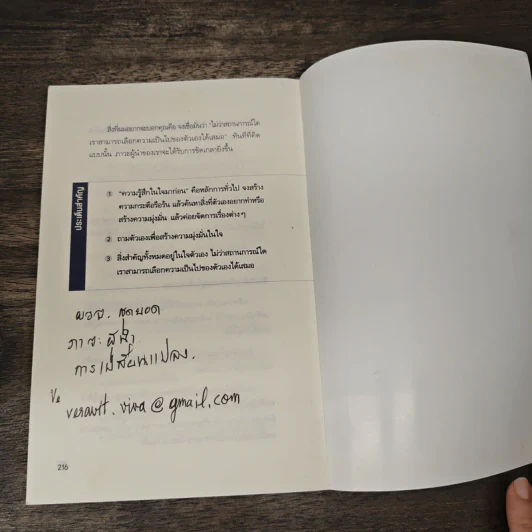 สิ่งที่ผมอยากจะบอกคุณคือ จงเชื่อมั่นว่า "ไม่ว่าสถานการณ์ใด
เราสามารถเลือกความเป็นไปของตัวเองได้เสมอ" ทันทีที่คิด
แบบนั้น ภาวะผู้นำของเราจะได้รับการขัดเกลายิ่งขึ้น
ประเด็นสำคัญ
① "ความรู้สึกในใจมาก่อน" คือหลักการทั่วไป จงสร้าง
ความกระตือรือร้น แล้วค้นหาสิ่งที่ตัวเองอยากทำหรือ
สร้างความมุ่งมั่น แล้วค่อยจัดการเรื่องต่างๆ
② ถามตัวเองเพื่อสร้างความมุ่งมั่นในใจ
③ สิ่งสำคัญทั้งหมดอยู่ในใจตัวเอง ไม่ว่าสถานการณ์ใด
เราสามารถเลือกความเป็นไปของตัวเองได้เสมอ
สุดยอด
ภาวะผู้นำ
การเปลี่ยนแปลง.
Ve
verawit.viwa@gmail.com
216